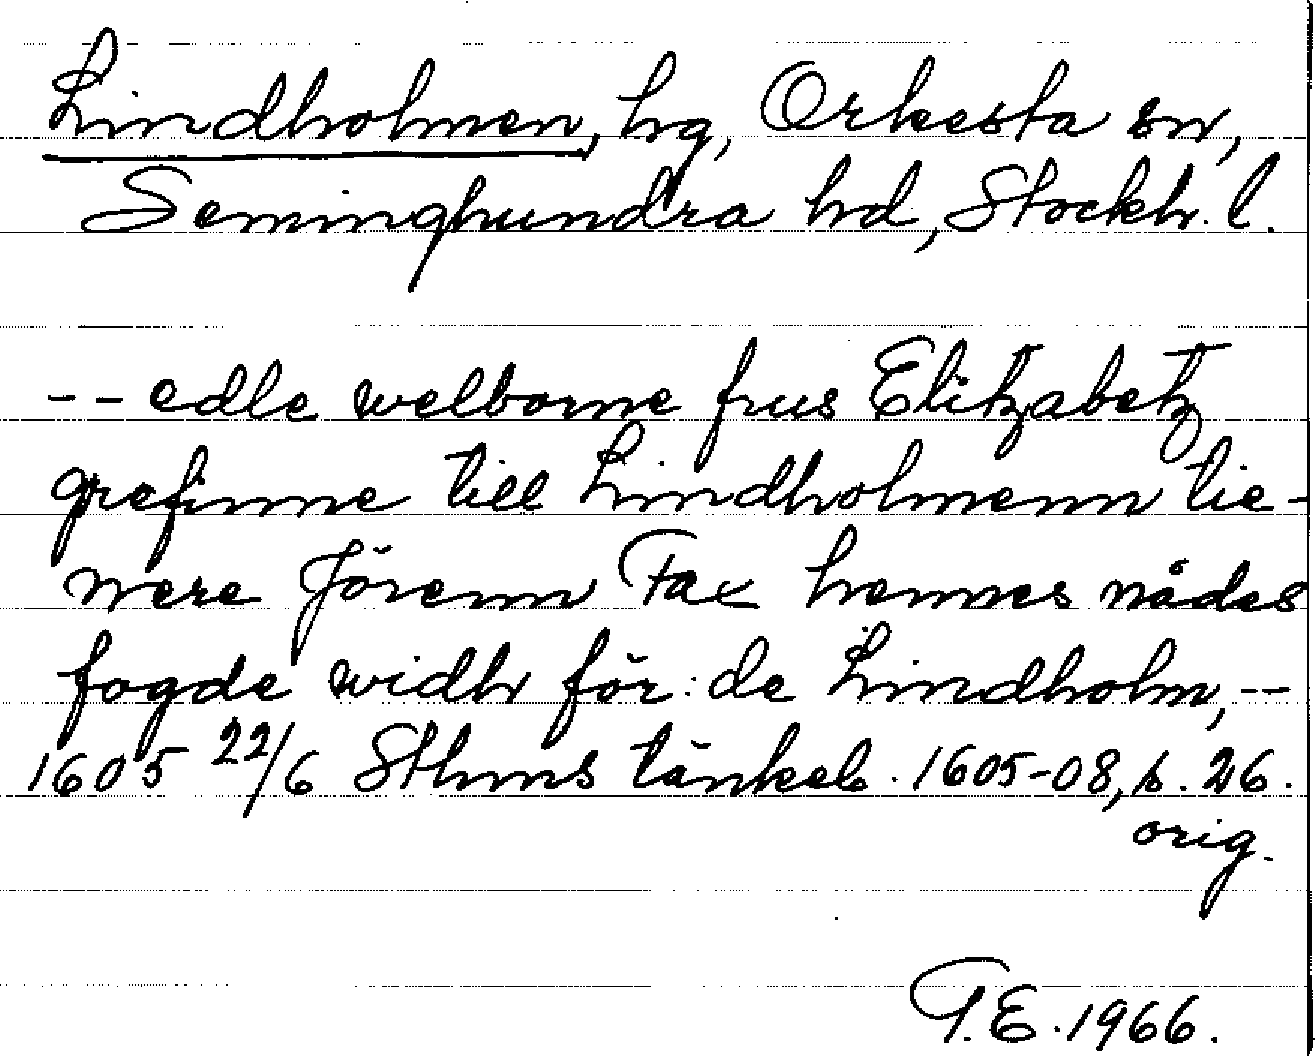 Lindholmen, hg, Orkesta sn,
Seminghundra hd, Stockh. l.
-- edle welborne frus Elitzabetz
grefinne till Lindholmenn tie-
nere Jörenn Fax hennes nådes
fogde widh för: de Lindholm, --
1605 22/6 Sthms tänkeb. 1605-08, s. 26.
orig.
T.E. 1966.